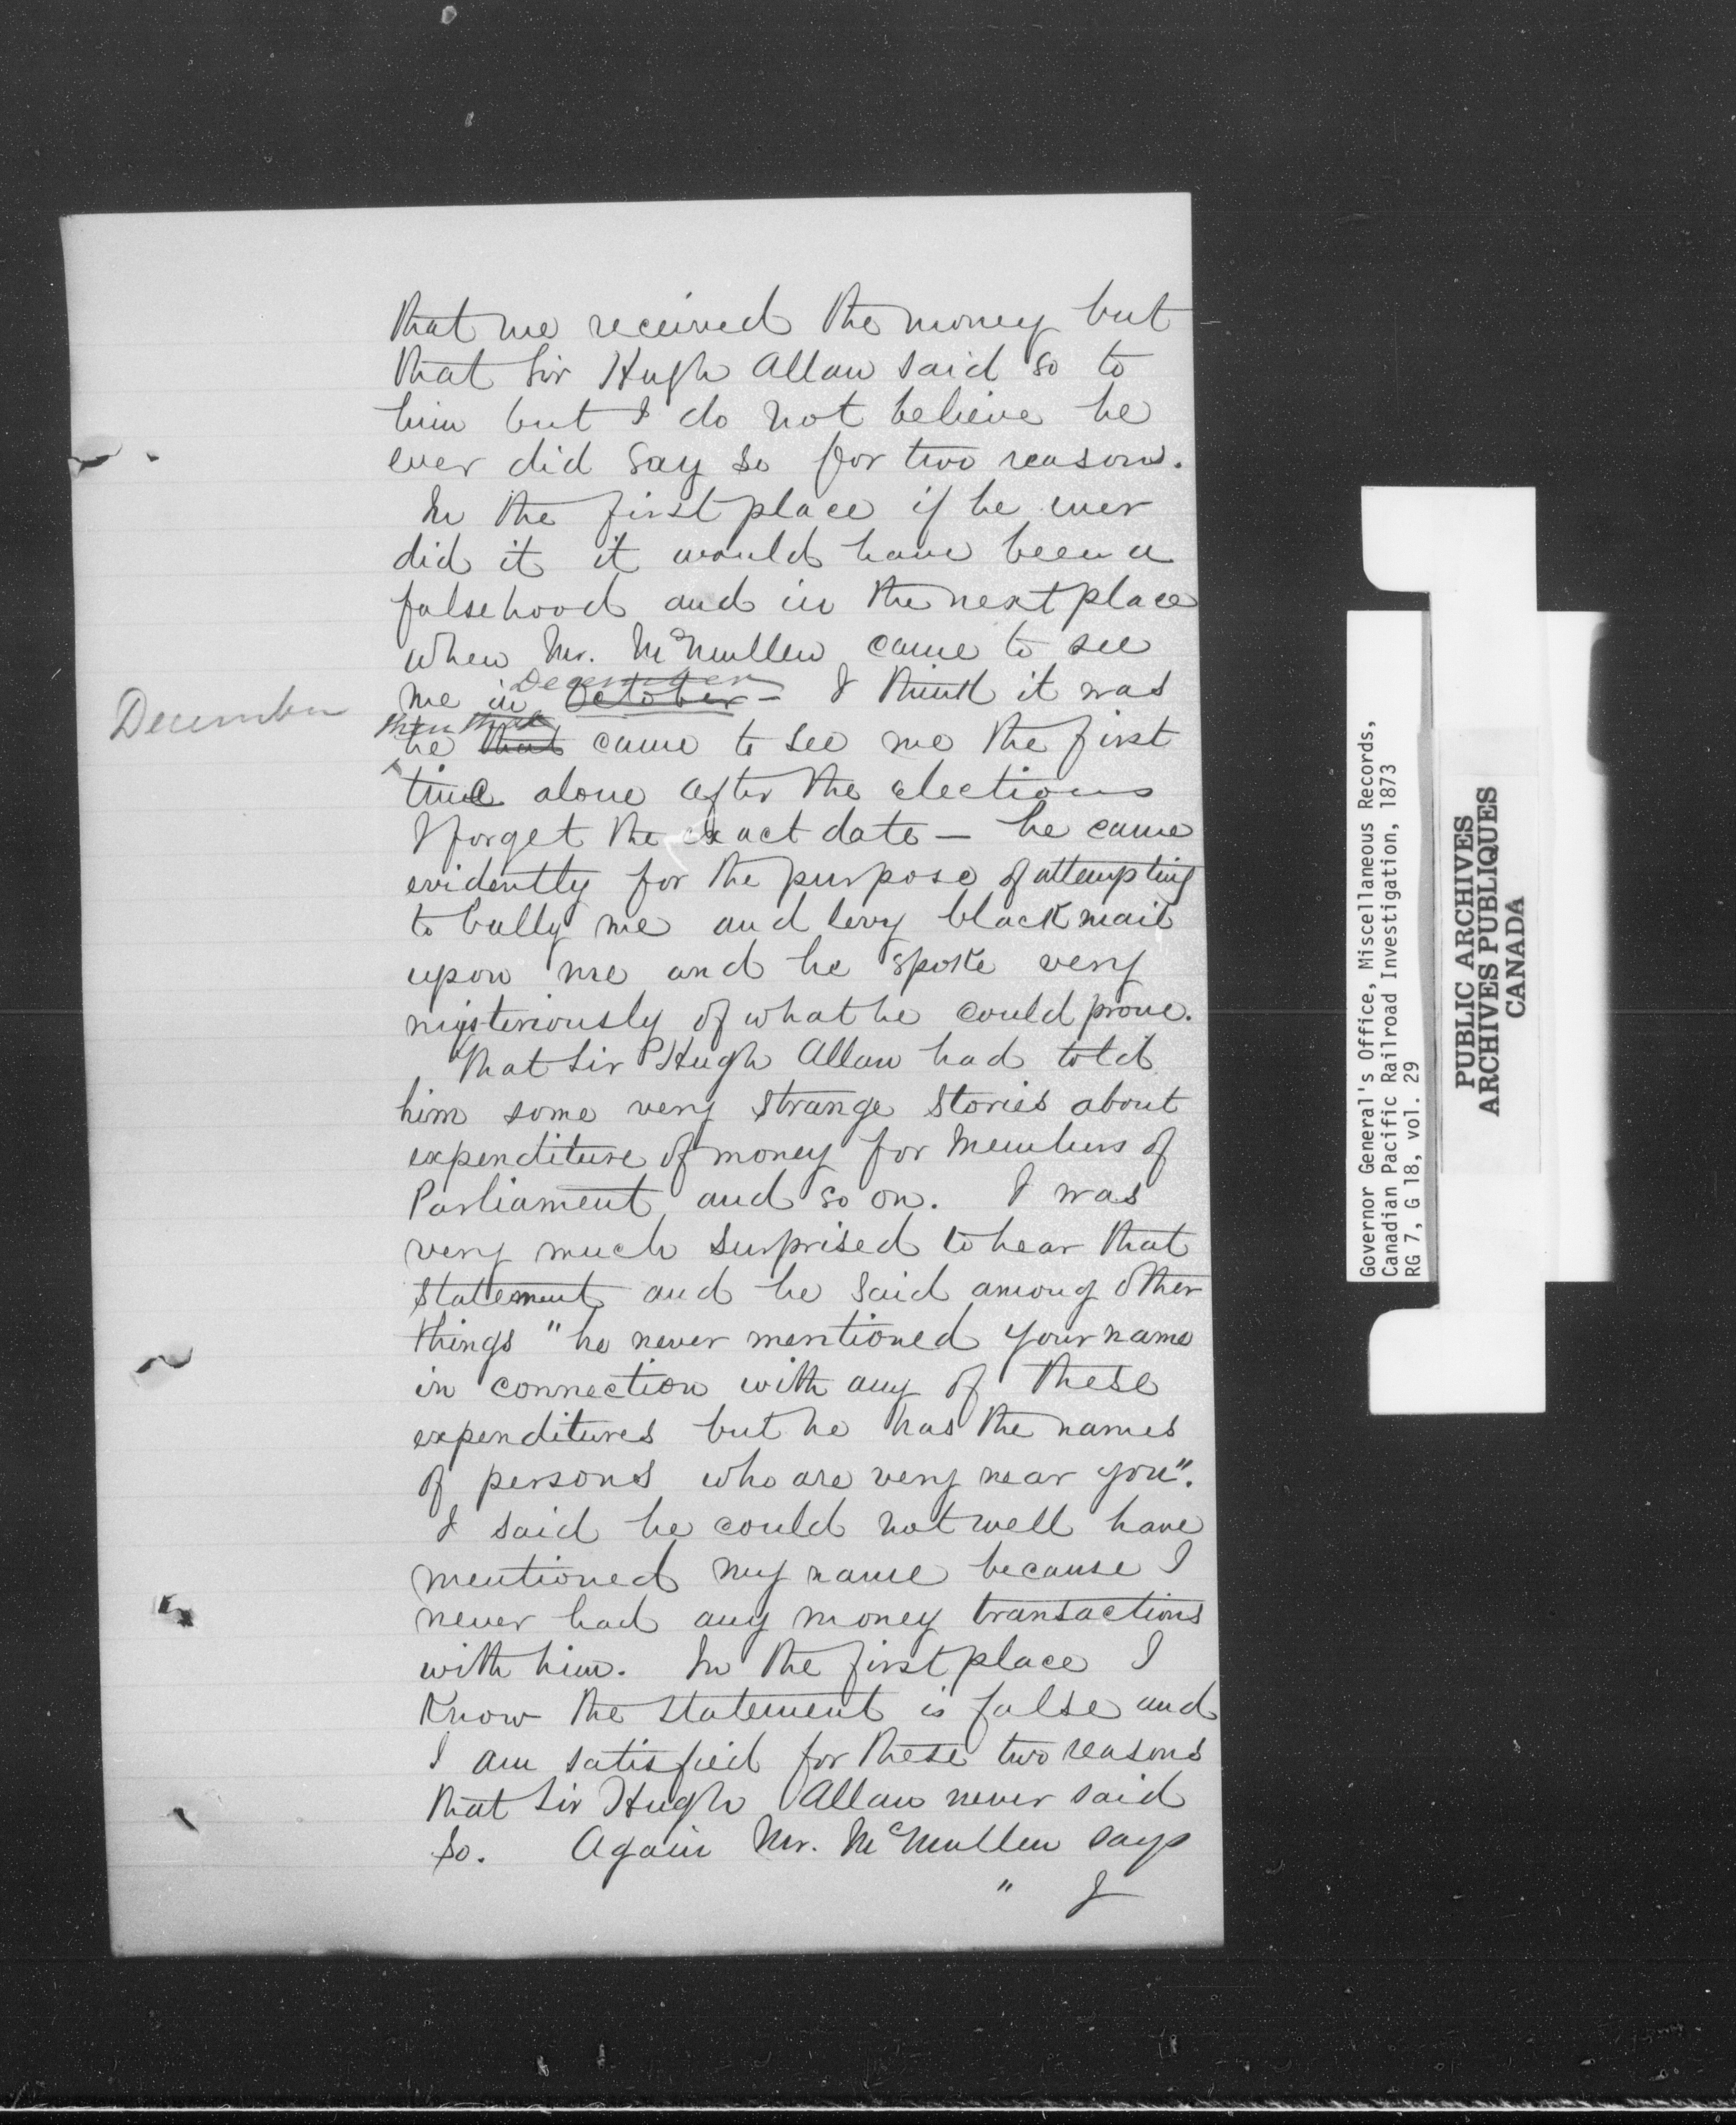 that me received the money but
that Sir Hugh Allan said so to
him but I do not believe he
ever did say so for two reasons.
In the first place if he ever
did it it would have been a
falsehood and in the next place
when Mr. McMullen came to see
December
me in October - I think it was
December
then that
he that came to see me the first
time alone after the elections
I forget the exact date - he came
evidently for the purpose of attempting
to bully me and levy blackmail
upon me and he spoke very
mysteriously of what he could prove.
That Sir Hugh Allan had told
him some very strange stories about
expenditure of money for Members of
Parliament and so on. I was
very much surprised to hear that
statement and he said among other
things "he never mentioned your name
in connection with any of these
expenditures but he has the names
of persons who are very near you".
I said he could not well have
mentioned my name because I
never had any money transactions
with him. In the first place I
Know the statement is false and
I am satisfied for these two reasons
that Sir Hugh Allan never said
so. Again Mr. McMullen says
" I
Governor General's Office, Miscellaneous Records,
Canadian Pacific Railroad Investigation, 1873
RG 7, G 18, vol. 29
PUBLIC ARCHIVES
ARCHIVES PUBLIQUES
CANADA